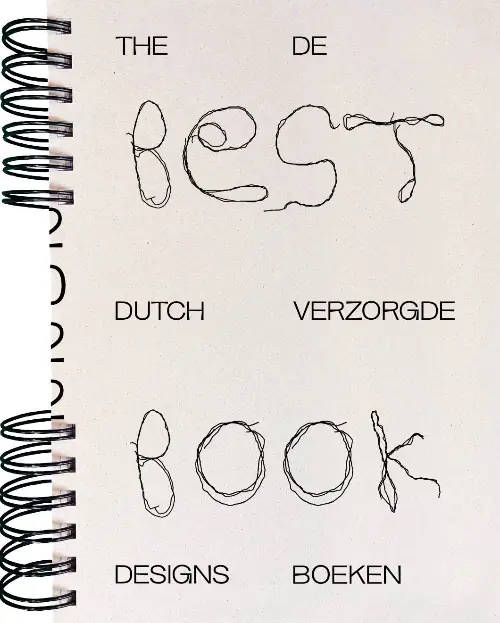 THE DE
BEST
DUTCH VERZORGDE
BOOK
DESIGNS BOEKEN